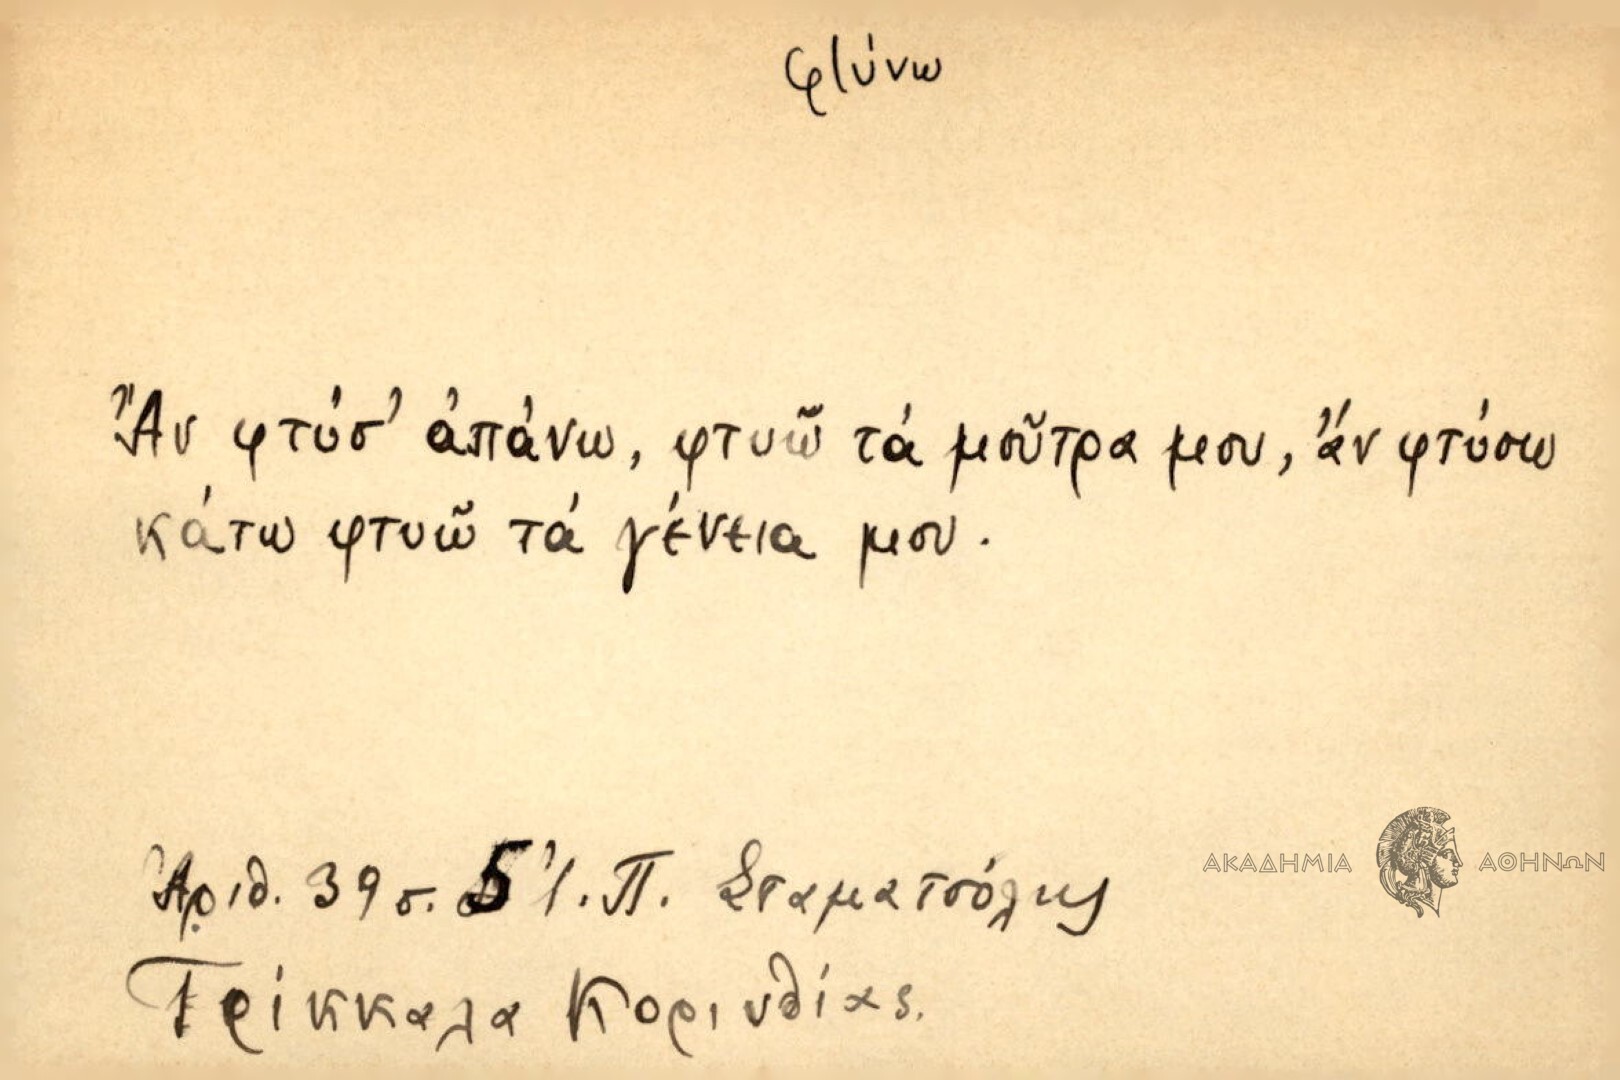 φτύνω
Ἄν φτύσ' ἀπάνω, φτυῶ τά μοῦτρα μου, ἄν φτύσω
κάτω φτυῶ τά γένεια μου.
ΑΚΑΔΗΜΙΑ ΑΘΗΝΩΝ
Ἀριθ. 39 σ. 5 Ἰ. Π. Σταματσόλης
Τρίκκαλα Κορινθίας.